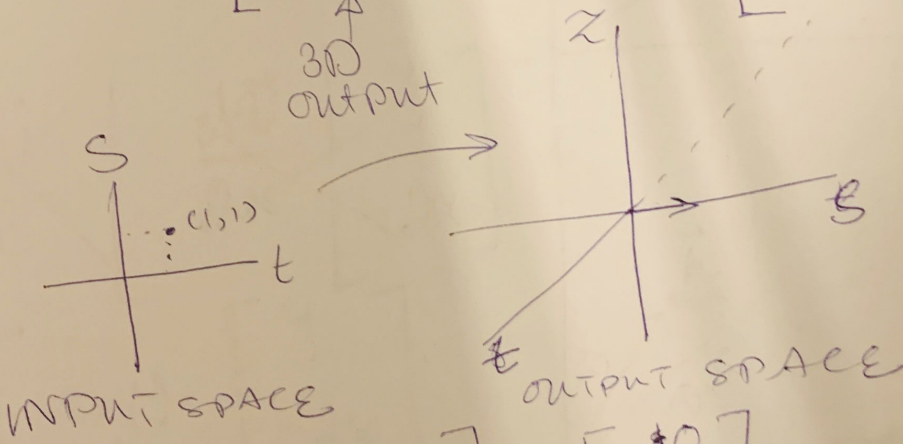 3D
output
Z
S
(1,1)
t
INPUT SPACE
OUTPUT SPACE